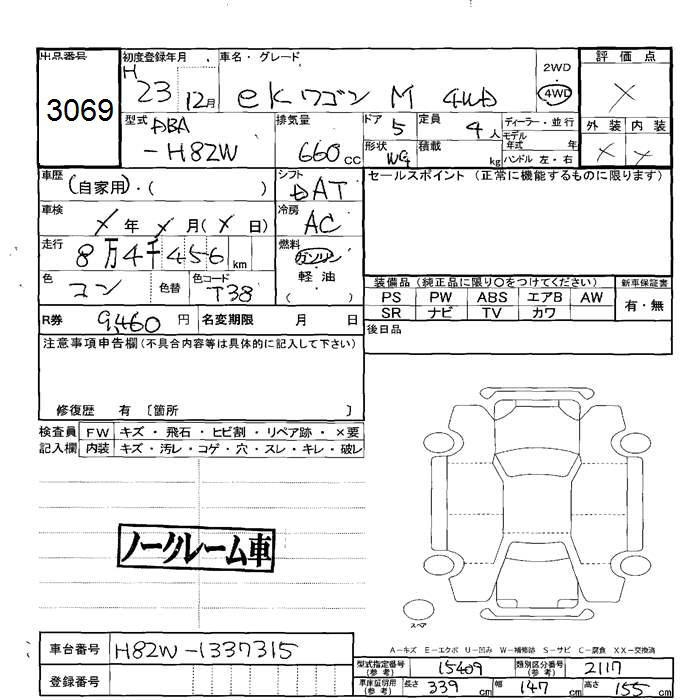 出品番号 初度登録年月 車名・グレード 評価点
3069 H 23 12月 eKワゴン M 4WD 2WD 4WD X
型式 DBA-H82W 排気量 660cc ドア 5 定員 4人 ディーラー・並行 外装 内装
形状 WG 積載 kg モデル年式 年 ハンドル 左・右 X X
車歴 (自家用)・( ) シフト DAT セールスポイント (正常に機能するものに限ります)
車検 X年 X月(X日) 冷房 AC
走行 8万4千456km 燃料 ガソリン
軽油
( )
色 コン 色替 色コード T38 装備品 (純正品に限り○をつけてください) 新車保証書
PS PW ABS エアB AW 有・無
R券 9,460円 名変期限 月 日 SR ナビ TV カワ
注意事項申告欄(不具合内容等は具体的に記入して下さい) 後日品
修復歴 有 〔箇所 〕
検査員 FW キズ・飛石・ヒビ割・リペア跡・×要
記入欄 内装 キズ・汚レ・コゲ・穴・スレ・キレ・破レ
ノークレーム車
スペア
車台番号 H82W-1337315 A-キズ E-エクボ U-凹み W-補修跡 S-サビ C-腐食 XX-交換済
型式指定番号(参考) 15409 類別区分番号(参考) 2117
登録番号 車庫証明用(参考) 長さ 339cm 幅 147cm 高さ 155cm